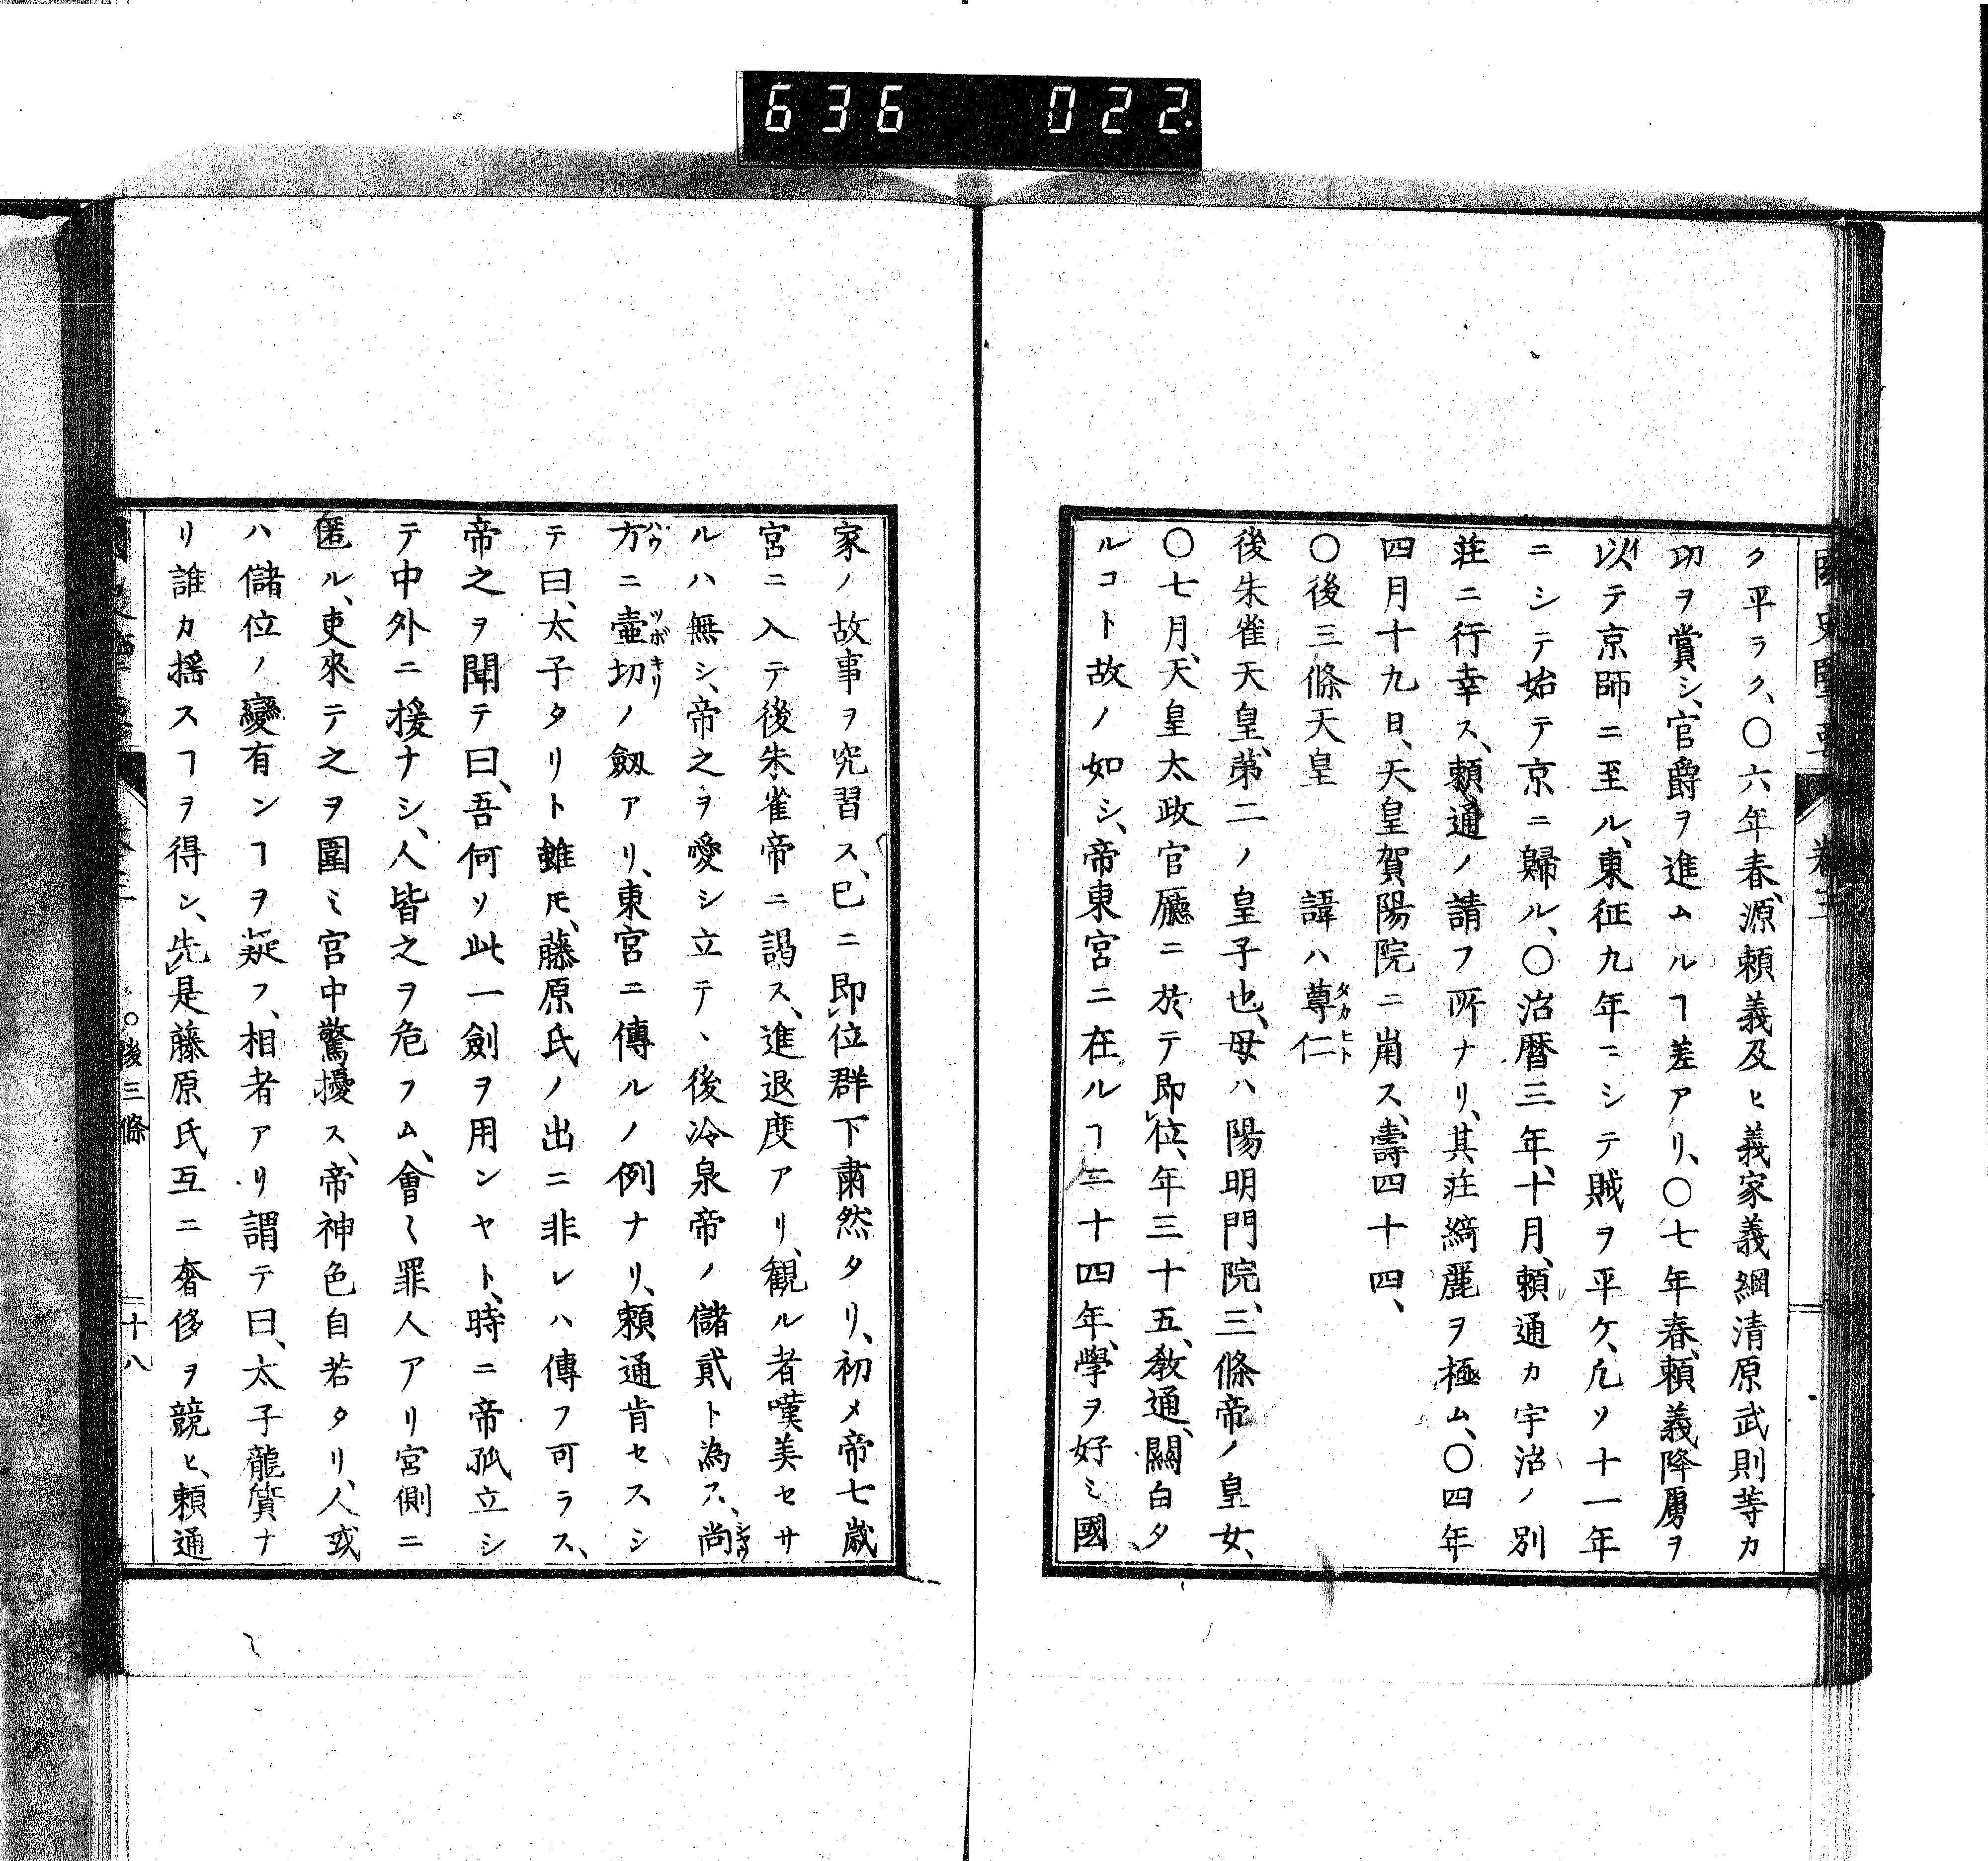 636 022
國史 卷三
ク平ラク、〇六年春、源頼義及ヒ義家義綱清原武則等カ
功ヲ賞シ、官爵ヲ進ムルヿ差アリ、〇七年春、頼義降虜ヲ
以テ京師ニ至ル、東征九年ニシテ賊ヲ平ケ、凡ソ十一年
ニシテ始テ京ニ歸ル、〇治暦三年、十月、頼通カ宇治ノ別
荘ニ行幸ス、頼通ノ請フ所ナリ、其荘綺麗ヲ極ム、〇四年
四月十九日、天皇賀陽院ニ崩ス、壽四十四、
〇後三條天皇　諱ハ尊仁タカヒト
後朱雀天皇、第二ノ皇子也、母ハ陽明門院、三條帝ノ皇女、
〇七月、天皇太政官廳ニ於テ即位、年三十五、教通、關白タ
ルコト故ノ如シ、帝東宮ニ在ルヿ二十四年、學ヲ好ミ國
家ノ故事ヲ究習ス、已ニ即位群下肅然タリ、初メ帝七歳
宮ニ入テ後朱雀帝ニ謁ス、進退度アリ、観ル者嘆美セサ
ルハ無シ、帝之ヲ愛シ立テヽ後冷泉帝ノ儲貳ト為ス、尚シヤウ
方ハウニ壷切ツボキリノ劔アリ、東宮ニ傳ルノ例ナリ、頼通肯セスシ
テ曰、太子タリト雖𪜈、藤原氏ノ出ニ非レハ傳フ可ラス、
帝之ヲ聞テ曰、吾何ソ此一劍ヲ用ンヤト、時ニ帝孤立シ
テ中外ニ援ナシ、人皆之ヲ危フム、會〻罪人アリ宮側ニ
匿ル、吏來テ之ヲ圍ミ宮中驚擾ス、帝神色自若タリ、人或
ハ儲位ノ變有ンヿヲ疑フ、相者アリ謂テ曰、太子龍質ナ
リ誰カ揺スヿヲ得ン、先是藤原氏互ニ奢侈ヲ競ヒ、頼通
〇後三條 十八